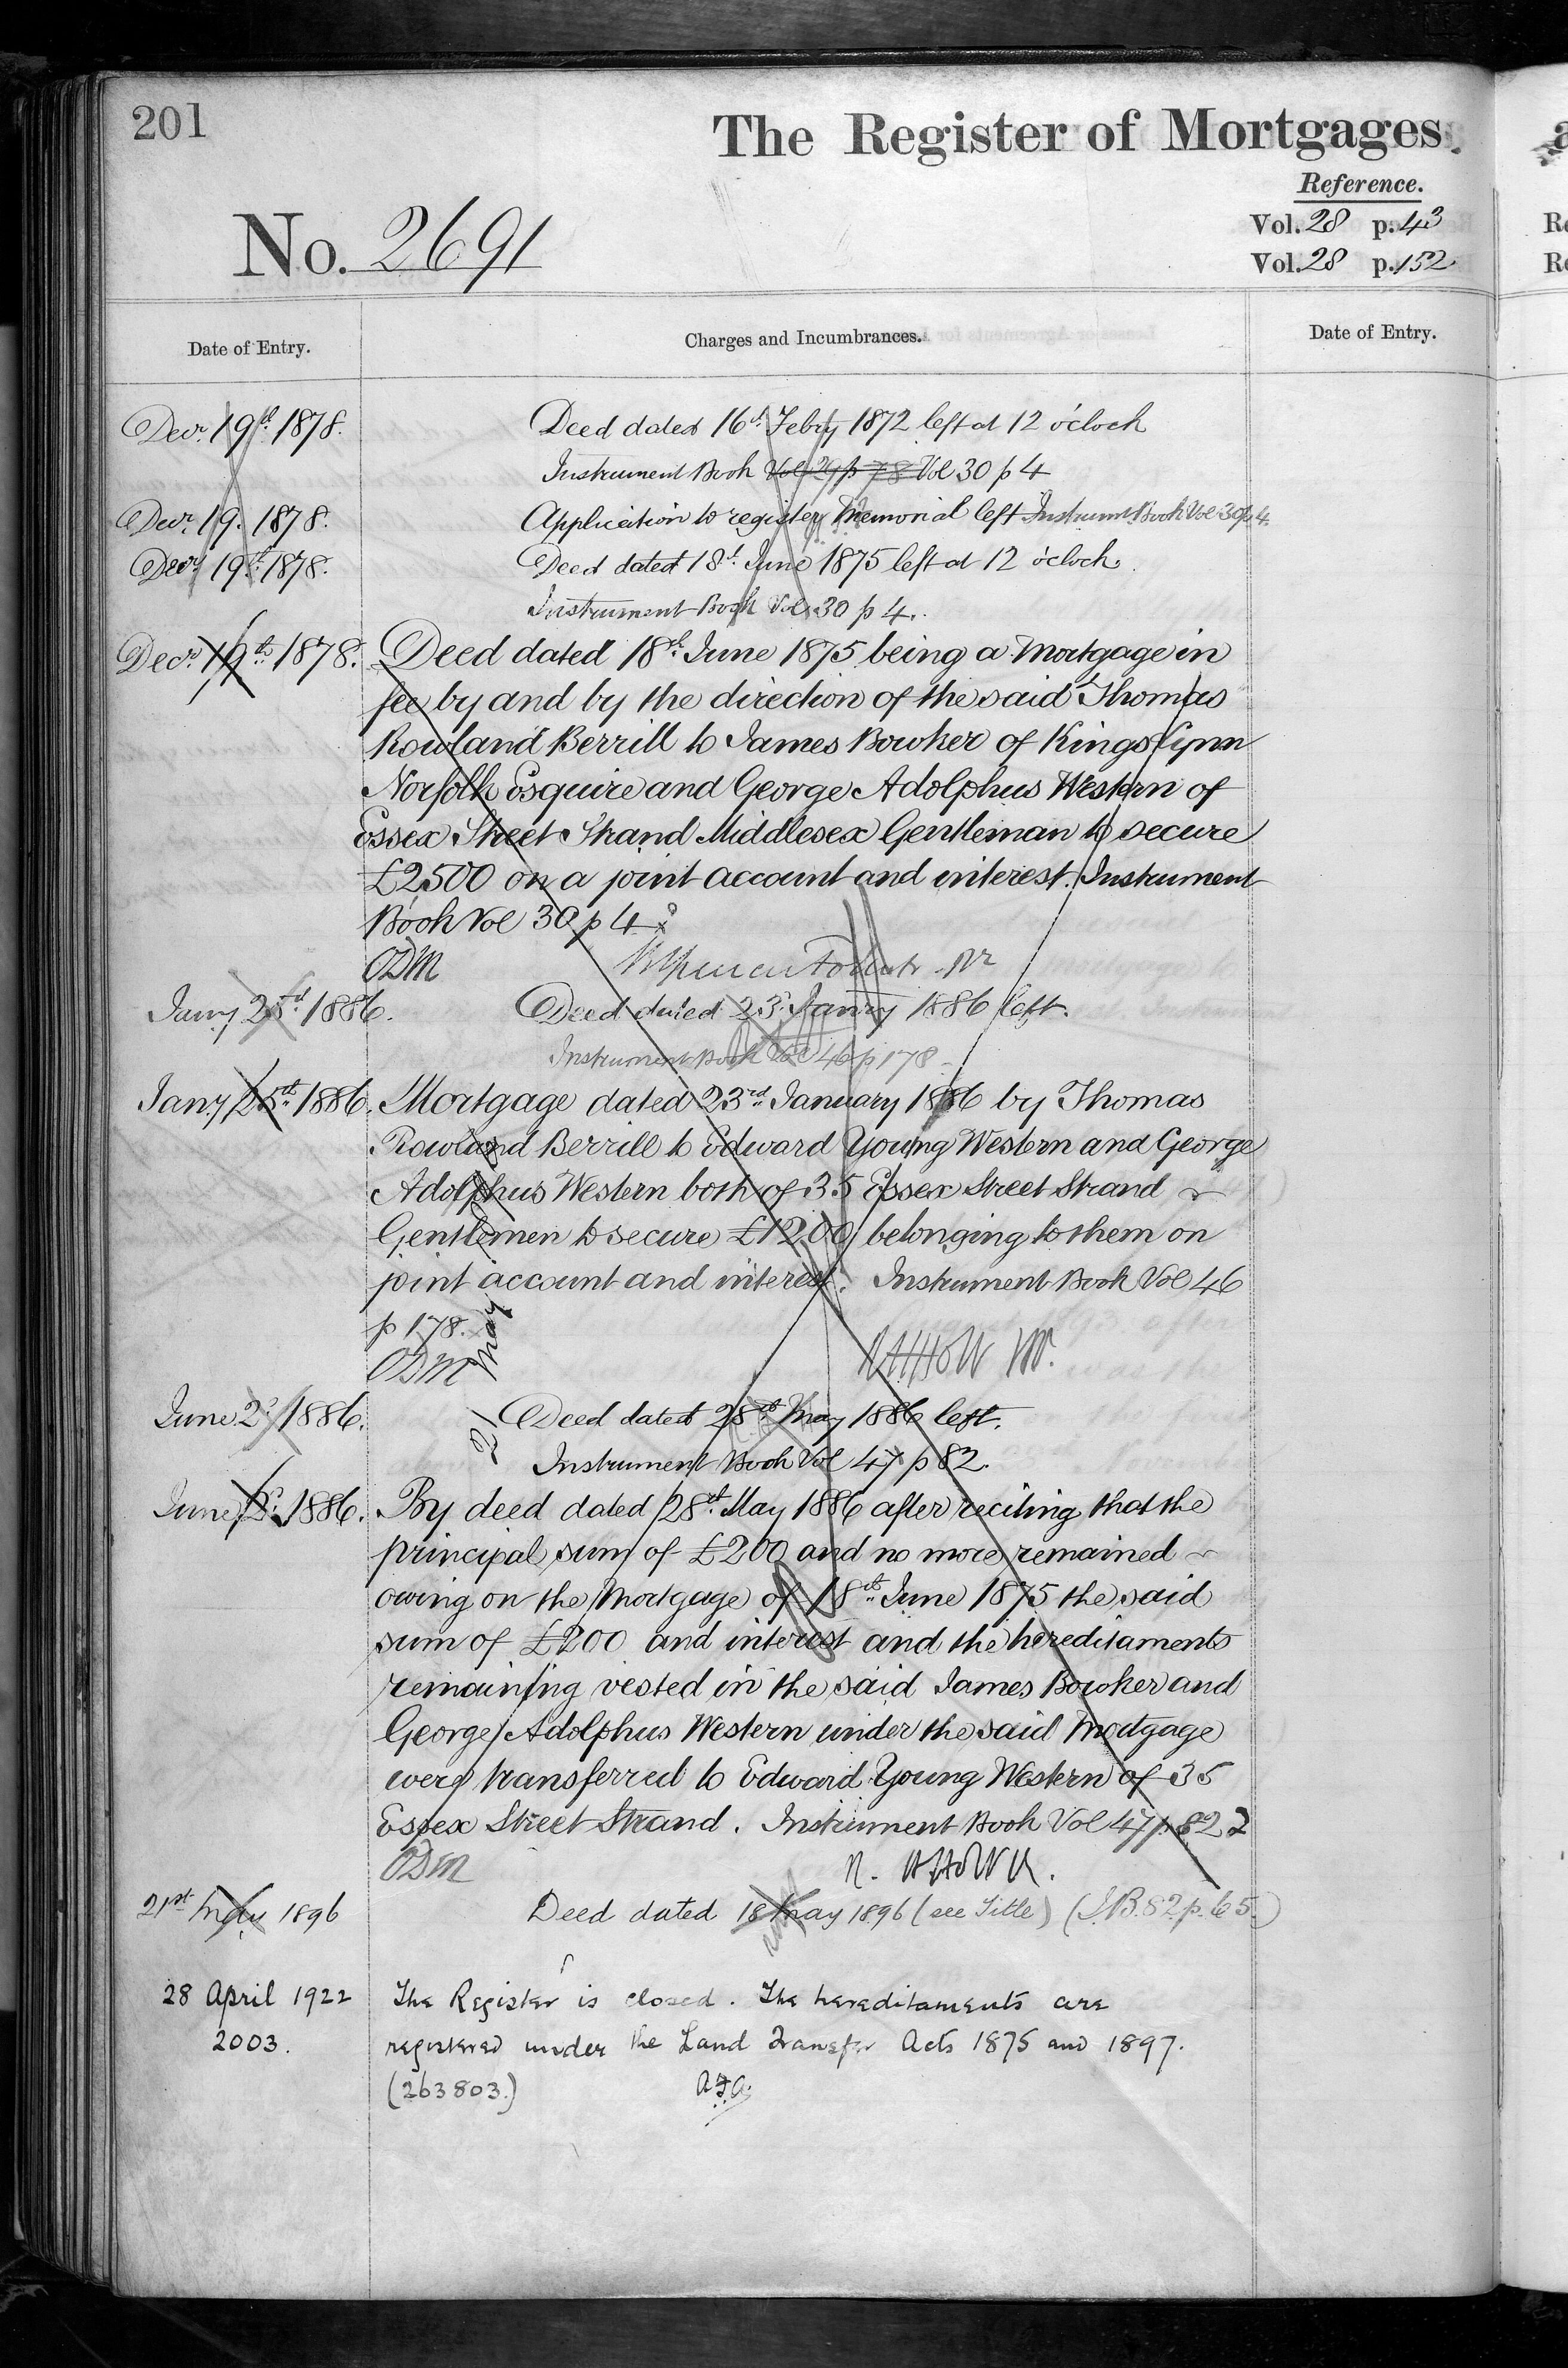 201
The Register of Mortgages.
Reference.
No. 2691
Vol. 28 p. 43
Vol. 28 p. 152
Date of Entry.
Charges and Incumbrances.
Date of Entry.
Decr. 19th 1878.
Deed dated 16th Febry 1872 left at 12 o'clock
Instrument Book Vol 29 p 78 Vol 30 p 4
Decr. 19. 1878.
Application to register Memorial left Instrumt. Book Vol 30 p 4.
Decr. 19th 1878.
Deed dated 18th June 1875 left at 12 o'clock.
Instrument Book Vol 30 p 4.
Decr. 19th 1878.
Deed dated 18th June 1875 being a Mortgage in
fee by and by the direction of the said Thomas
Rowland Berrill to James Bowker of Kings Lynn
Norfolk Esquire and George Adolphus Western of
Essex Street Strand Middlesex Gentleman to secure
£2500 on a joint account and interest. Instrument
Book Vol 30 p 4
ODM
Jany 25th 1886.
Deed dated 23rd Janry 1886 left.
Instrument Book Vol 46 p 178
Jany 25th 1886.
Mortgage dated 23rd January 1886 by Thomas
Rowland Berrill to Edward Young Western and George
Adolphus Western both of 35 Essex Street Strand
Gentlemen to secure £1200 belonging to them on
joint account and interest. Instrument Book Vol 46
p 178.
ODM
21 May
June 2d 1886.
Deed dated 28th May 1886 left.
Instrument Book Vol 47 p 82.
June 2d 1886.
By deed dated 28th May 1886 after reciting that the
principal sum of £200 and no more remained
owing on the Mortgage of 18th June 1875 the said
sum of £200 and interest and the hereditaments
remaining vested in the said James Bowker and
George Adolphus Western under the said Mortgage
were transferred to Edward Young Western of 35
Essex Street Strand. Instrument Book Vol 47 p. 82
ODM
21st May 1896
Deed dated 18 May 1896 (see Title) (I.B. 82 p. 65.)
28 April 1922
The Register is closed. The hereditaments are
2003.
registered under the Land Transfer Acts 1875 and 1897.
(263803.)